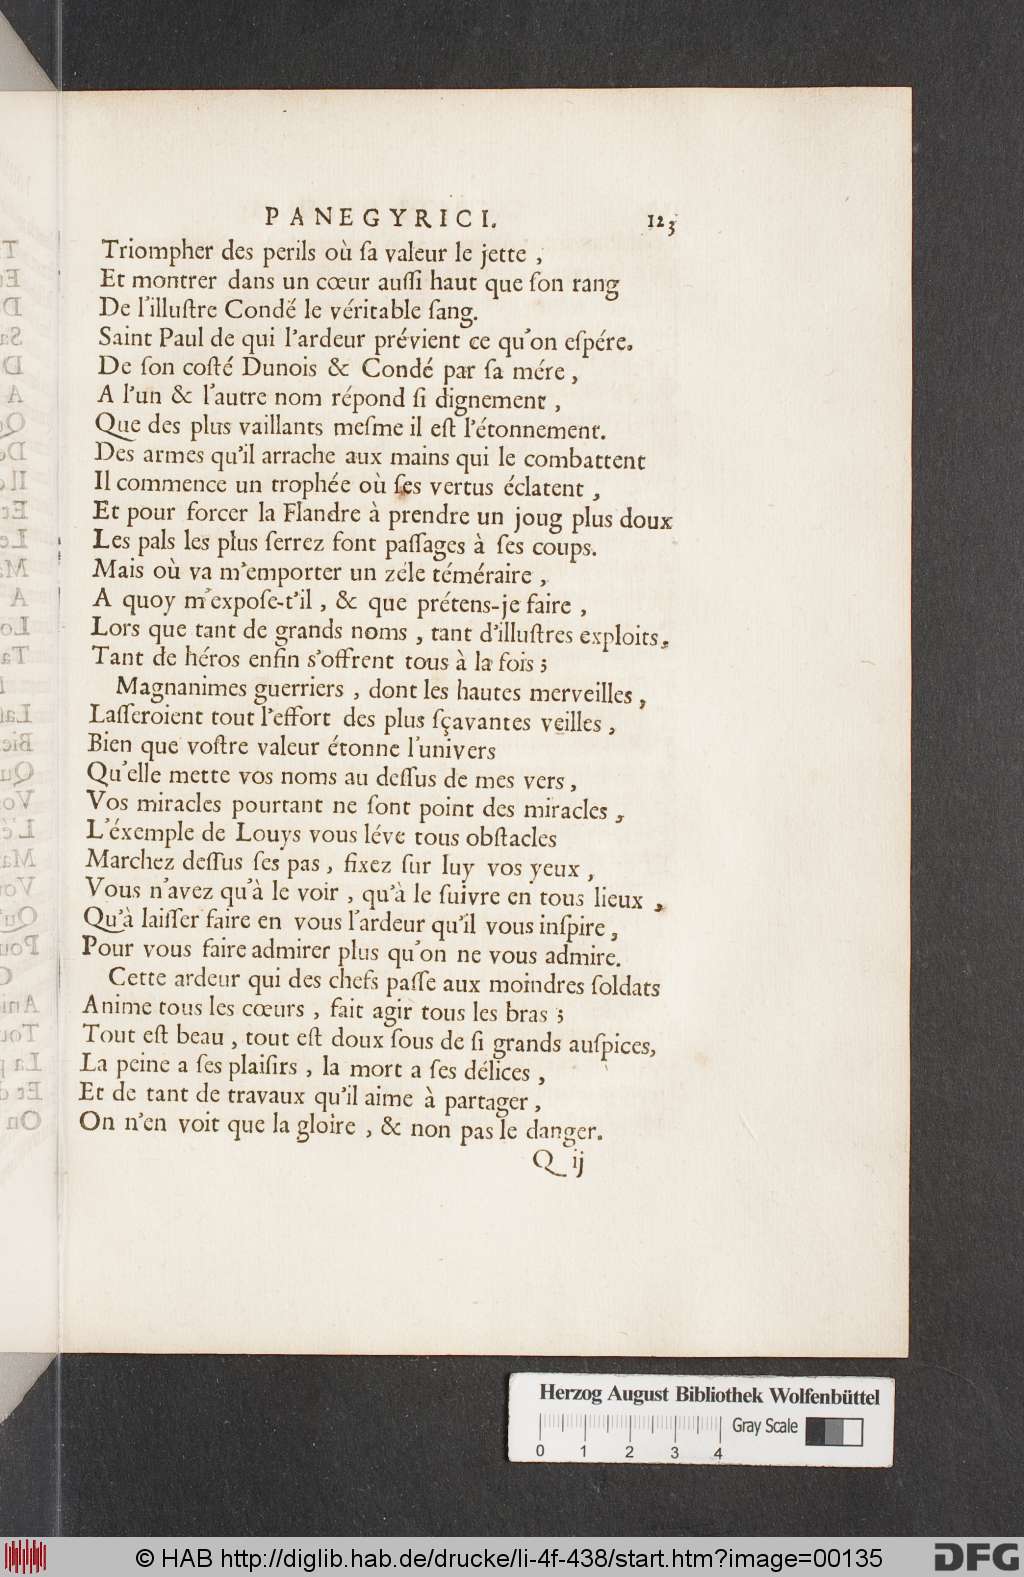 PANEGYRICI. 123
Triompher des perils où ſa valeur le jette ,
Et montrer dans un cœur auſſi haut que ſon rang
De l'illuſtre Condé le véritable ſang.
Saint Paul de qui l'ardeur prévient ce qu'on eſpére.
De ſon coſté Dunois & Condé par ſa mére ,
A l'un & l'autre nom répond ſi dignement ,
Que des plus vaillants meſme il eſt l'étonnement.
Des armes qu'il arrache aux mains qui le combattent
Il commence un trophée où ſes vertus éclatent ,
Et pour forcer la Flandre à prendre un joug plus doux
Les pals les plus ſerrez ſont paſſages à ſes coups.
Mais où va m'emporter un zéle téméraire ,
A quoy m'expoſe-t'il , & que prétens-je faire ,
Lors que tant de grands noms , tant d'illuſtres exploits,
Tant de héros enfin s'offrent tous à la fois ;
Magnanimes guerriers , dont les hautes merveilles ,
Laſſeroient tout l'effort des plus ſçavantes veilles ,
Bien que voſtre valeur étonne l'univers
Qu'elle mette vos noms au deſſus de mes vers ,
Vos miracles pourtant ne ſont point des miracles ,
L'éxemple de Louys vous léve tous obſtacles
Marchez deſſus ſes pas , fixez ſur luy vos yeux ,
Vous n'avez qu'à le voir , qu'à le ſuivre en tous lieux ,
Qu'à laiſſer faire en vous l'ardeur qu'il vous inſpire ,
Pour vous faire admirer plus qu'on ne vous admire.
Cette ardeur qui des chefs paſſe aux moindres ſoldats
Anime tous les cœurs , fait agir tous les bras ;
Tout eſt beau , tout eſt doux ſous de ſi grands auſpices,
La peine a ſes plaiſirs , la mort a ſes délices ,
Et de tant de travaux qu'il aime à partager ,
On n'en voit que la gloire , & non pas le danger.
Q ij
Herzog August Bibliothek Wolfenbüttel
Gray Scale
0 1 2 3 4
© HAB http://diglib.hab.de/drucke/li-4f-438/start.htm?image=00135
DFG